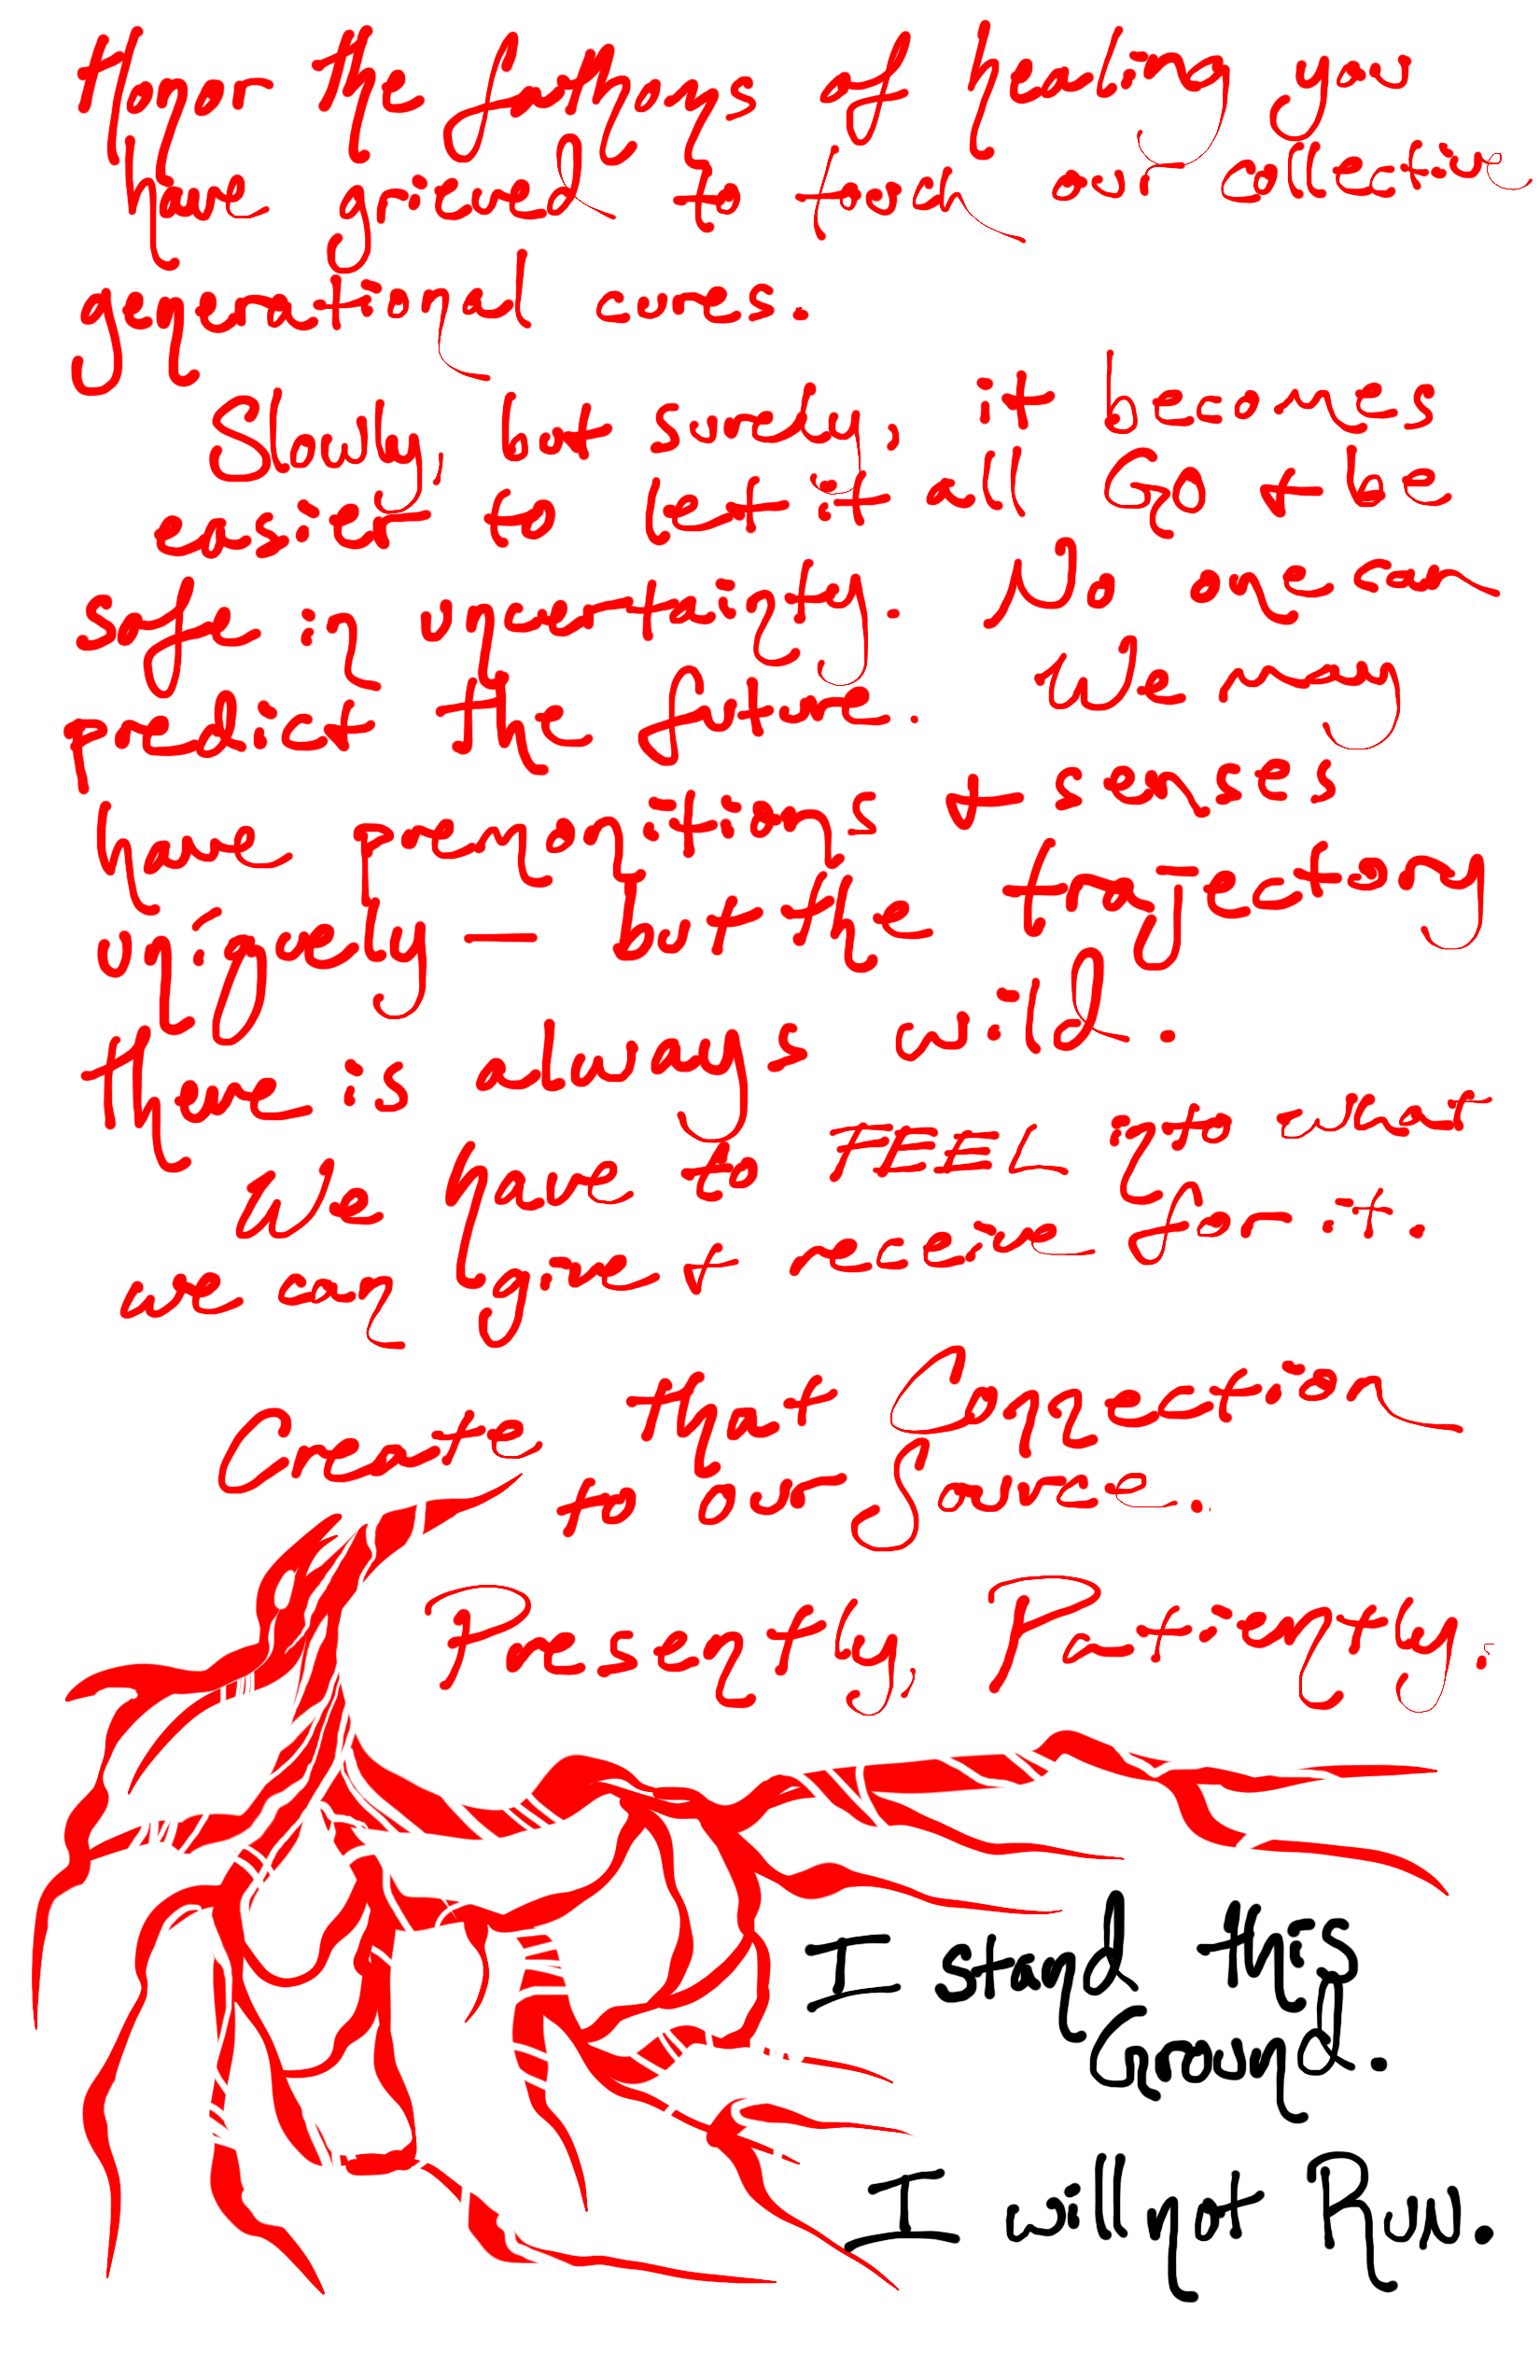 Honor the fathoms of healing you
have grieved to feed our collective
generational cores.
Slowly, but surely, it becomes
easier to let it all GO & be
safe in uncertainty. No one can
predict the future. We may
have premonitions & senses
uniquely — but the trajectory
there is always wild.
We have to FEEL into what
we can give & receive for it.
Create that Connection
to our Source..
Presently, Patiently.
I stand this
Ground.
I will not Run.